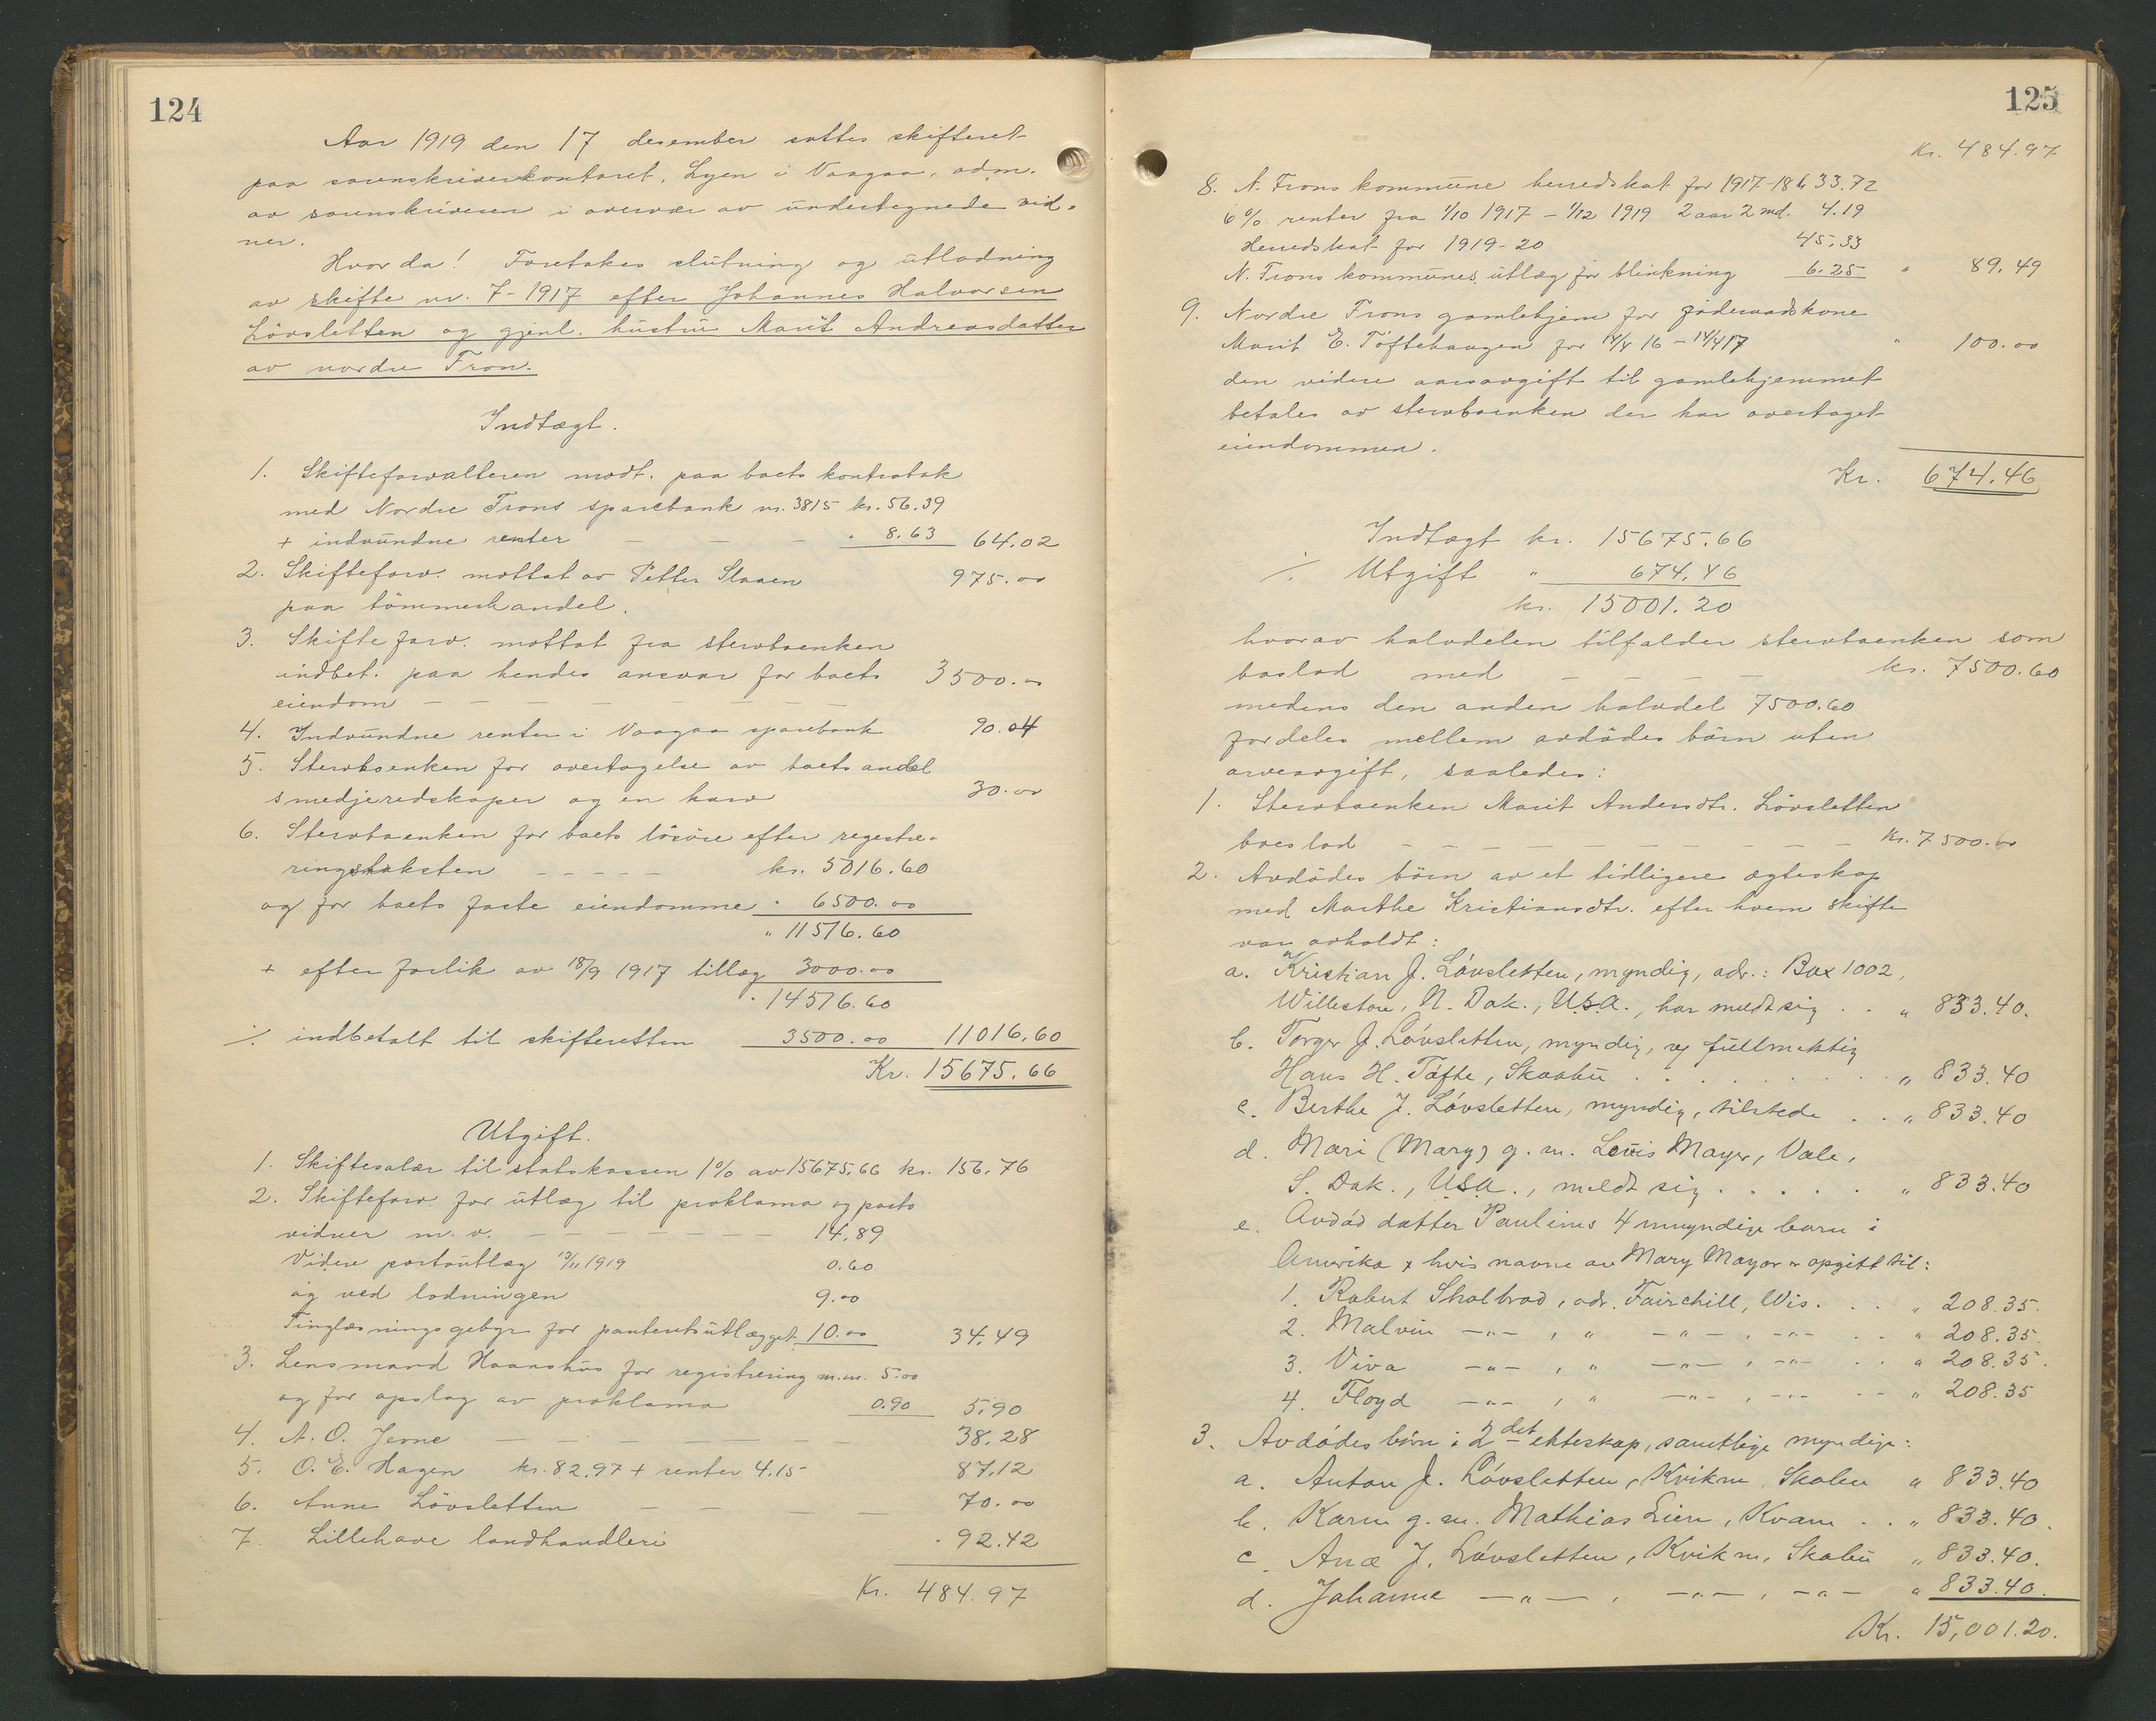 124
Aar 1919 den 17 desember sattes skifteret
paa sorenskriverkontoret, Lyen i Vaagaa, adm.
av sorenskriveren i overvær av undertegnede vid-
ner.
Hvorda! Foretokes slutning og utlodning
av skifte nr. 7-1917 efter Johannes Halvorsen
Lövsletten og gjenl. hustru Marit Andreasdatter
av nordre Fron.
Indtægt.
1. Skifteforvalteren modt. paa boets kontrabok
med Nordre Frons sparebank nr. 3815 kr. 56.39
+ indvundne renter — — — " 8.63 64.02
2. Skifteforv. mottat av Petter Slaaen 975.00
paa tömmerhandel.
3. Skifteforv. mottat fra stervboenken
indbet. paa hendes ansvar for boets 3500.00
eiendom — — — — — — —
4. Indvundne renter i Vaagaa sparebank 90.04
5. Stervboenken for overtagelse av boets andel
smedjeredskaper og en harv 30.00
6. Stervboenken for boets lösöre efter registre-
ringstaksten - - - - - kr. 5016.60
og for boets faste eiendomme " 6500.00
" 11516.60
+ efter forlik av 18/9 1917 tillæg 3000.00
" 14516.60
./. indbetalt til skifteretten 3500.00 11016.60
Kr. 15675.66
Utgift.
1. Skiftesalær til statskassen 1% av 15675.66 kr. 156.76
2. Skifteforv. for utlæg til proklama og porto
vidner m. v. - - - - - - - 14.89
Videre portoutlæg 13/11 1919 0.60
og ved lodningen 9.00
Tinglæsningsgebyr for panteutlægget 10.00 34.49
3. Lensmand Haanshus for registrering m.m. 5.00
og for opslag av proklama 0.90 5.90
4. A. O. Jerne — — — — — 38.28
5. O. E. Hagen kr. 82.97 + renter 4.15 87.12
6. Anne Lövsletten — — — — 70.00
7. Lillehave landhandleri " 92.42
Kr. 484.97
125
Kr. 484.97
8. N. Frons kommune herredskat for 1917-18 k 33.72
6% renter fra 1/10 1917 - 1/12 1919 2 aar 2 md. 4.19
Herredskat for 1919-20 45.33
N. Frons kommunes utlæg for blinkning 6.25 " 89.49
9. Nordre Frons gamlehjem for föderaadskone
Marit E. Töftehaugen for 14/4 16 - 14/4 17 " 100.00
den videre aarsavgift til gamlehjemmet
betales av stervboenken der har overtaget
eiendommen.
Kr. 674.46
Indtægt kr. 15675.66
./. Utgift " 674.46
kr. 15001.20
hvorav halvdelen tilfalder stervboenken som
boslod med — — — — kr. 7500.60
medens den anden halvdel 7500.60
fordeles mellem avdödes börn uten
arveavgift, saaledes:
1. Stervboenken Marit Andersdtr. Lövsletten
boeslod - - - - - - - - - - - Kr. 7500.60
2. Avdödes börn av et tidligere ægteskap
med Marthe Kristiansdtr. efter hvem skifte
var avholdt:
a. Kristian J. Lövsletten, myndig, adr.: Box 1002,
Williston, N. Dak., U.S.A., har meldt sig . . " 833.40.
b. Torger J. Lövsletten, myndig, ved fullmektig
Hans H. Töfte, Skaabu . . . . . . . . . " 833.40
c. Berthe J. Lövsletten, myndig, tilstede . . " 833.40
d. Mari (Mary) g. m. Louis Mayer, Vale,
S. Dak., U.S.A., meldt sig . . . . . " 833.40
e. Avdöd datter Paulines 4 umyndige barn i
Amerika, hvis navne av Mary Mayer er opgitt til:
1. Robert Skolbrod, adr. Fairchill, Wis. . . " 208.35.
2. Malvin —"— , " —"— , —"— . . " 208.35.
3. Viva —"— , " —"— , —"— . . " 208.35.
4. Floyd —"— , " —"— , —"— . . " 208.35
3. Avdödes börn i 2det ekteskap, samtlige myndige:
a. Anton J. Lövsletten, Kvikne, Skabu " 833.40
b. Karen g. m. Mathias Lien, Kvam . . " 833.40.
c. Ane J. Lövsletten, Kvikne, Skabu " 833.40.
d. Johanne —"— , —"— , —"— " 833.40.
Kr. 15,001.20.